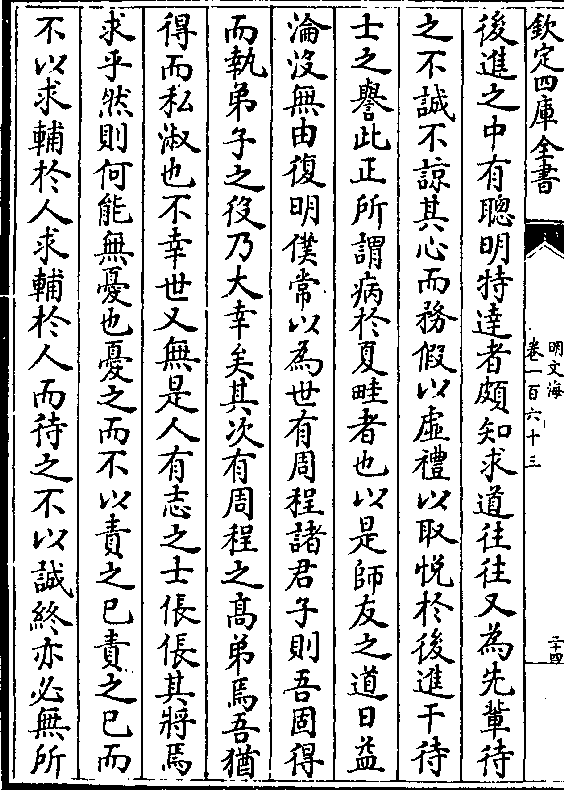 欽定四庫全書
明文海
卷一百六十三
二十四
後進之中有聰明特達者頗知求道往往又為先輩待
之不誠不諒其心而務假以虛禮以取悅於後進干待
士之譽此正所謂病於夏畦者也以是師友之道日益
淪沒無由復明僕常以為世有周程諸君子則吾固得
而執弟子之役乃大幸矣其次有周程之高弟焉吾猶
得而私淑也不幸世又無是人有志之士倀倀其將焉
求乎然則何能無憂也憂之而不以責之己責之己而
不以求輔於人求輔於人而待之不以誠終亦必無所